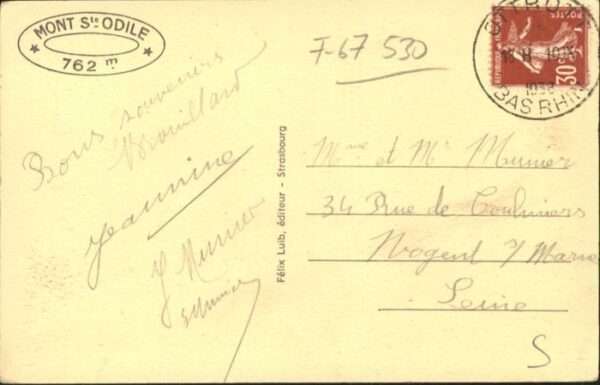 MONT Ste ODILE
762 m
F-67 530
REPUBLIQUE
POSTES
30c
1938
BAS RHIN
Bons souvenirs
Brouillard
Jeannine
J Munier
Félix Luib, éditeur - Strasbourg
Mme et Mr Munier
34 Rue de Coulmiers
Nogent s/ Marne
Seine
S